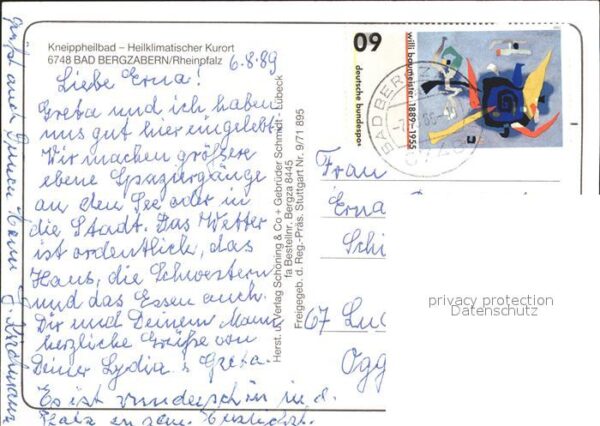 Kneippheilbad – Heilklimatischer Kurort
6748 BAD BERGZABERN/Rheinpfalz
6.8.89
Liebe Erna!
Greta und ich haben
uns gut hier eingelebt.
Wir machen größere
ebene Spaziergänge
an den See oder in
die Stadt. Das Wetter
ist ordentlich, das
Haus, die Schwestern
und das Essen auch.
Dir und Deinem Mann
herzliche Grüße von
Deiner Lydia & Greta.
Es ist wunderschön in d.
Pfalz
grüßt auch Deinen
Herst. u. Verlag Schöning & Co + Gebrüder Schmidt · Lübeck
fa Bestellnr. Bergza 8445
Freigegeb. d. Reg.-Präs. Stuttgart Nr. 9/71 895
60
willi baumeister 1889-1955
deutsche bundespost
BAD BERGZ
6748
Frau
Erna
Schi
67 Lu
Ogg
privacy protection
Datenschutz